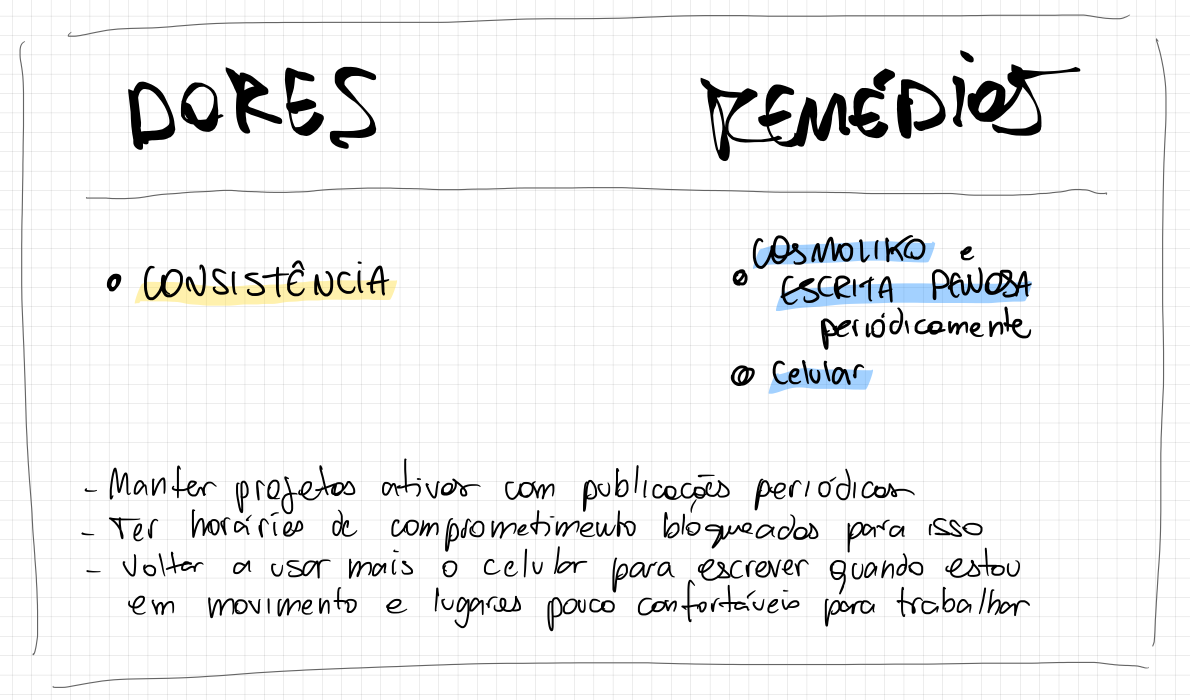 DORES
REMÉDIOS
• CONSISTÊNCIA
• COSMOLIKO e
ESCRITA PENOSA
periódicamente
• Celular
- Manter projetos ativos com publicações periódicas
- Ter horários de comprometimento bloqueados para isso
- Voltar a usar mais o celular para escrever quando estou
em movimento e lugares pouco confortáveis para trabalhar